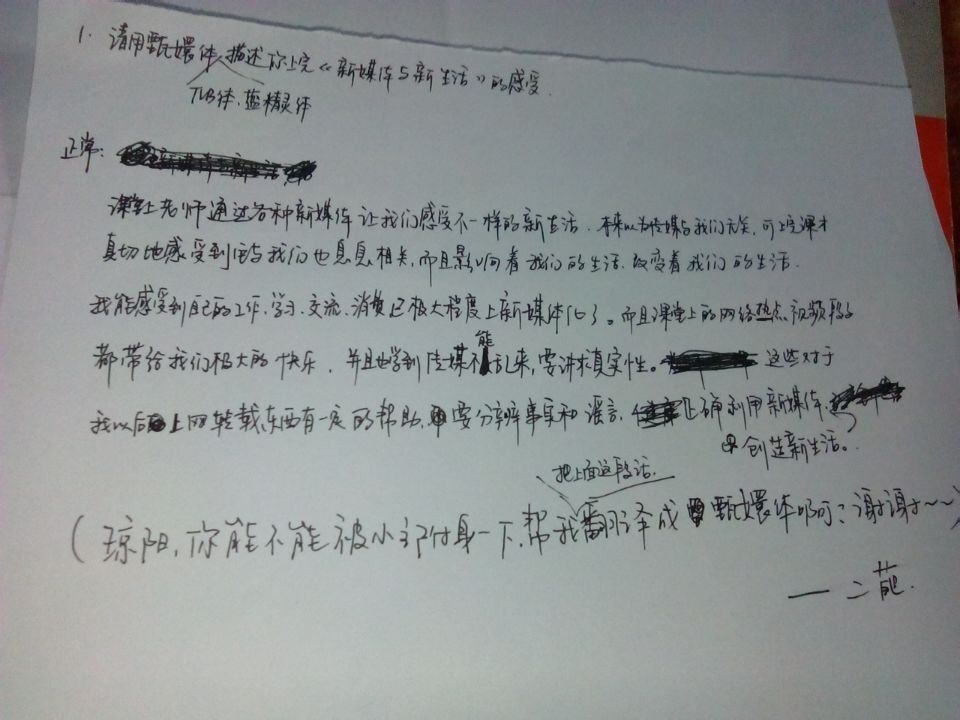 1. 请用甄嬛体描述你上完《新媒体与新生活》的感受.
TVB体.蓝精灵体
正常:
课堂上老师通过各种新媒体让我们感受不一样的新生活. 本来以为传媒与我们无关,可上完课才
真切地感受到它与我们也息息相关,而且影响着我们的生活.改变着我们的生活.
我能感受到自己的工作.学习.交流.消费已极大程度上新媒体化了。而且课堂上的网络热点视频段子
都带给我们极大的快乐. 并且也学到传媒不能乱来,要讲求真实性。 这些对于
我以后上网转载东西有一定的帮助. 要分辨事实和谣言, 正确利用新媒体,
创造新生活。
把上面这段话
(琼阳,你能不能被小主附身一下.帮我翻译成甄嬛体啊?谢谢~~)
—二葩.